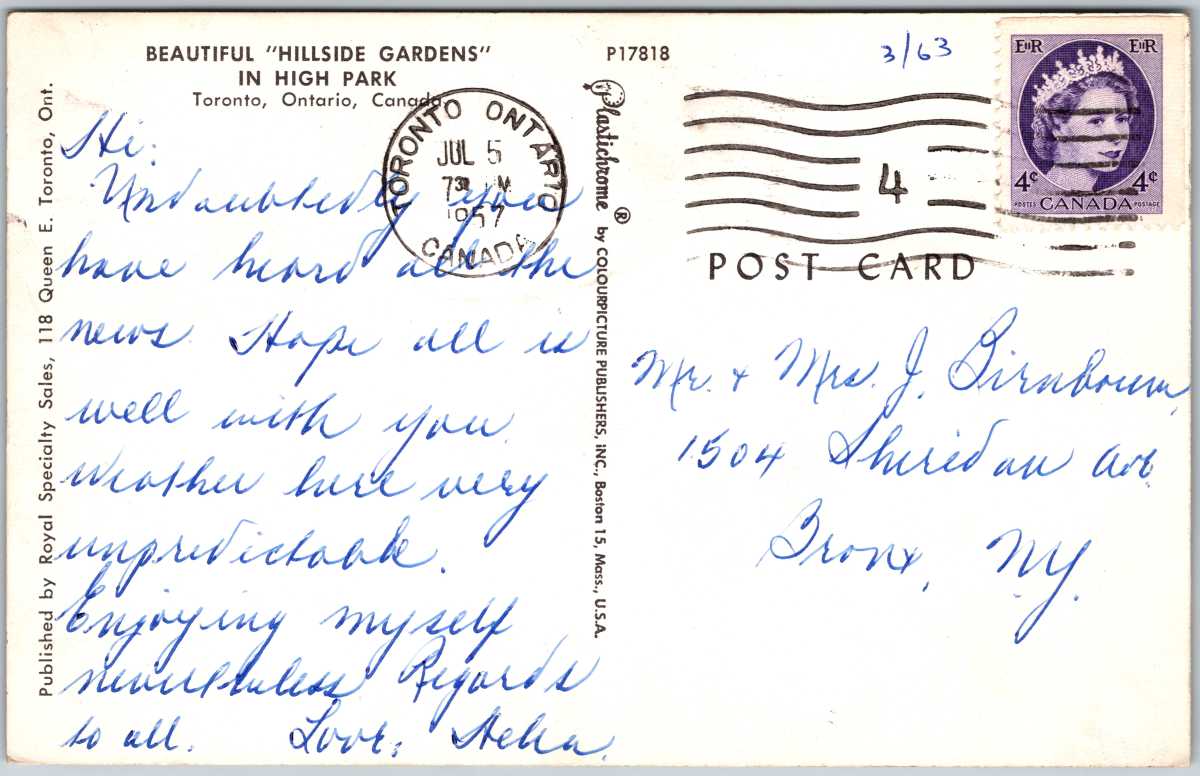 BEAUTIFUL "HILLSIDE GARDENS"
IN HIGH PARK
Toronto, Ontario, Canada
P17818
3/63
EIIR EIIR
4¢ 4¢
POSTES CANADA POSTAGE
TORONTO ONTARIO
JUL 5
730 M
1957
CANADA
4
POST CARD
Published by Royal Specialty Sales, 118 Queen E. Toronto, Ont.
Plastichrome ® by COLOURPICTURE PUBLISHERS, INC., Boston 15, Mass., U.S.A.
Hi:
Undoubtedly you
have heard all the
news. Hope all is
well with you.
Weather here very
unpredictable.
Enjoying myself
nevertheless Regards
to all. Love,
Mr. + Mrs. J. Birnbaum
1504 Sheridan Ave
Bronx, NY.